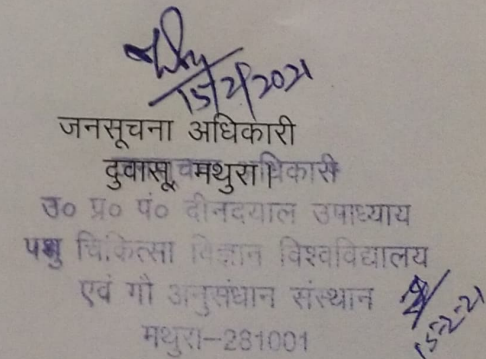 15/2/2021
जनसूचना अधिकारी
दुवासू, मथुरा।
जनसूचना अधिकारी
उ० प्र० पं० दीनदयाल उपाध्याय
पशु चिकित्सा विज्ञान विश्वविद्यालय
एवं गौ अनुसंधान संस्थान
मथुरा-281001
15-2-21